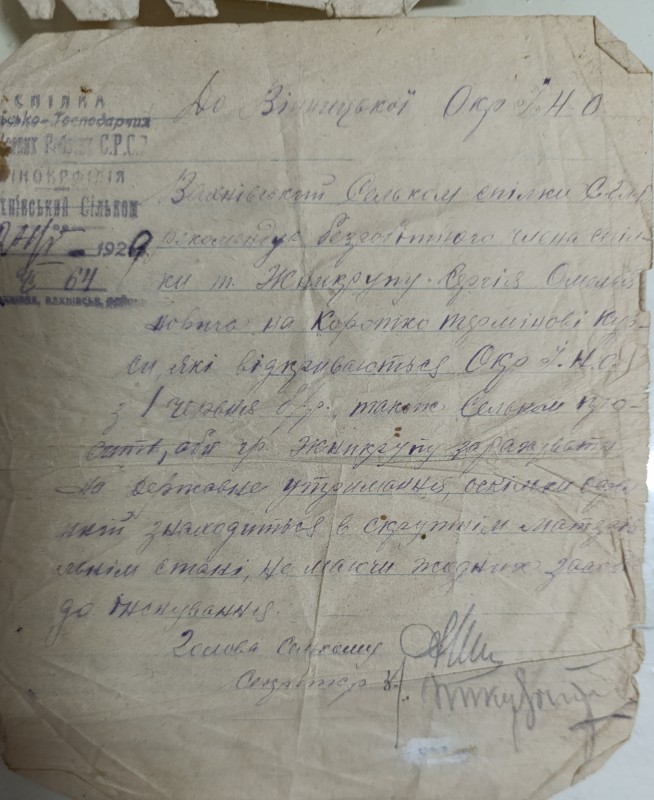 СПІЛКА
сько-Господарчих
Робітн. С.Р.С.Р.
ВІНОКРФІЛІЯ
хнівський Сільком
1929
№ 64
До Вінницької Окр І.Н.О
Вахнівський Сельком спілки С.Г.Л.Р
рікомендує безробітного члена спіл-
ки т. Жникрупу Сергія Омеля
новича на коротко термінові кур-
си, які відкриваються Окр І.Н.О.
з 1 червня б/р., також Сельком про-
сить, аби гр. Жникрупу зарахувати
на державне утримання, оскільки
знаходиться в скрутнім матерія
льнім стані, не маючи жодних засоб
до існування.
Голова Селькому
Секретар